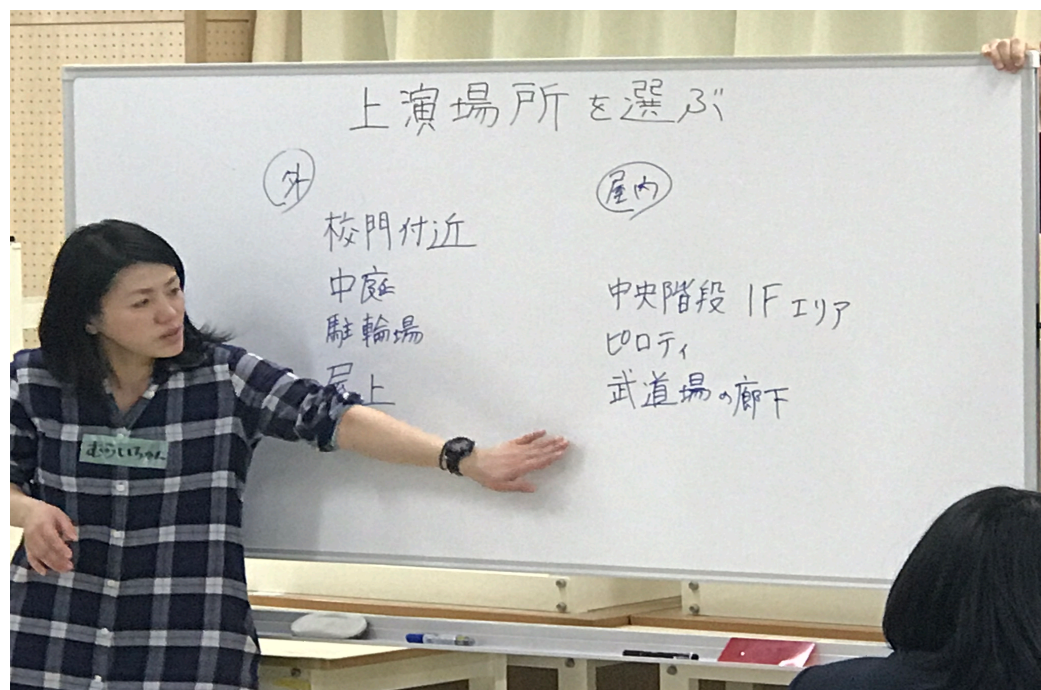 上演場所を選ぶ
外
校門付近
中庭
駐輪場
屋上
屋内
中央階段 1Fエリア
ピロティ
武道場の廊下
むらいちゃん